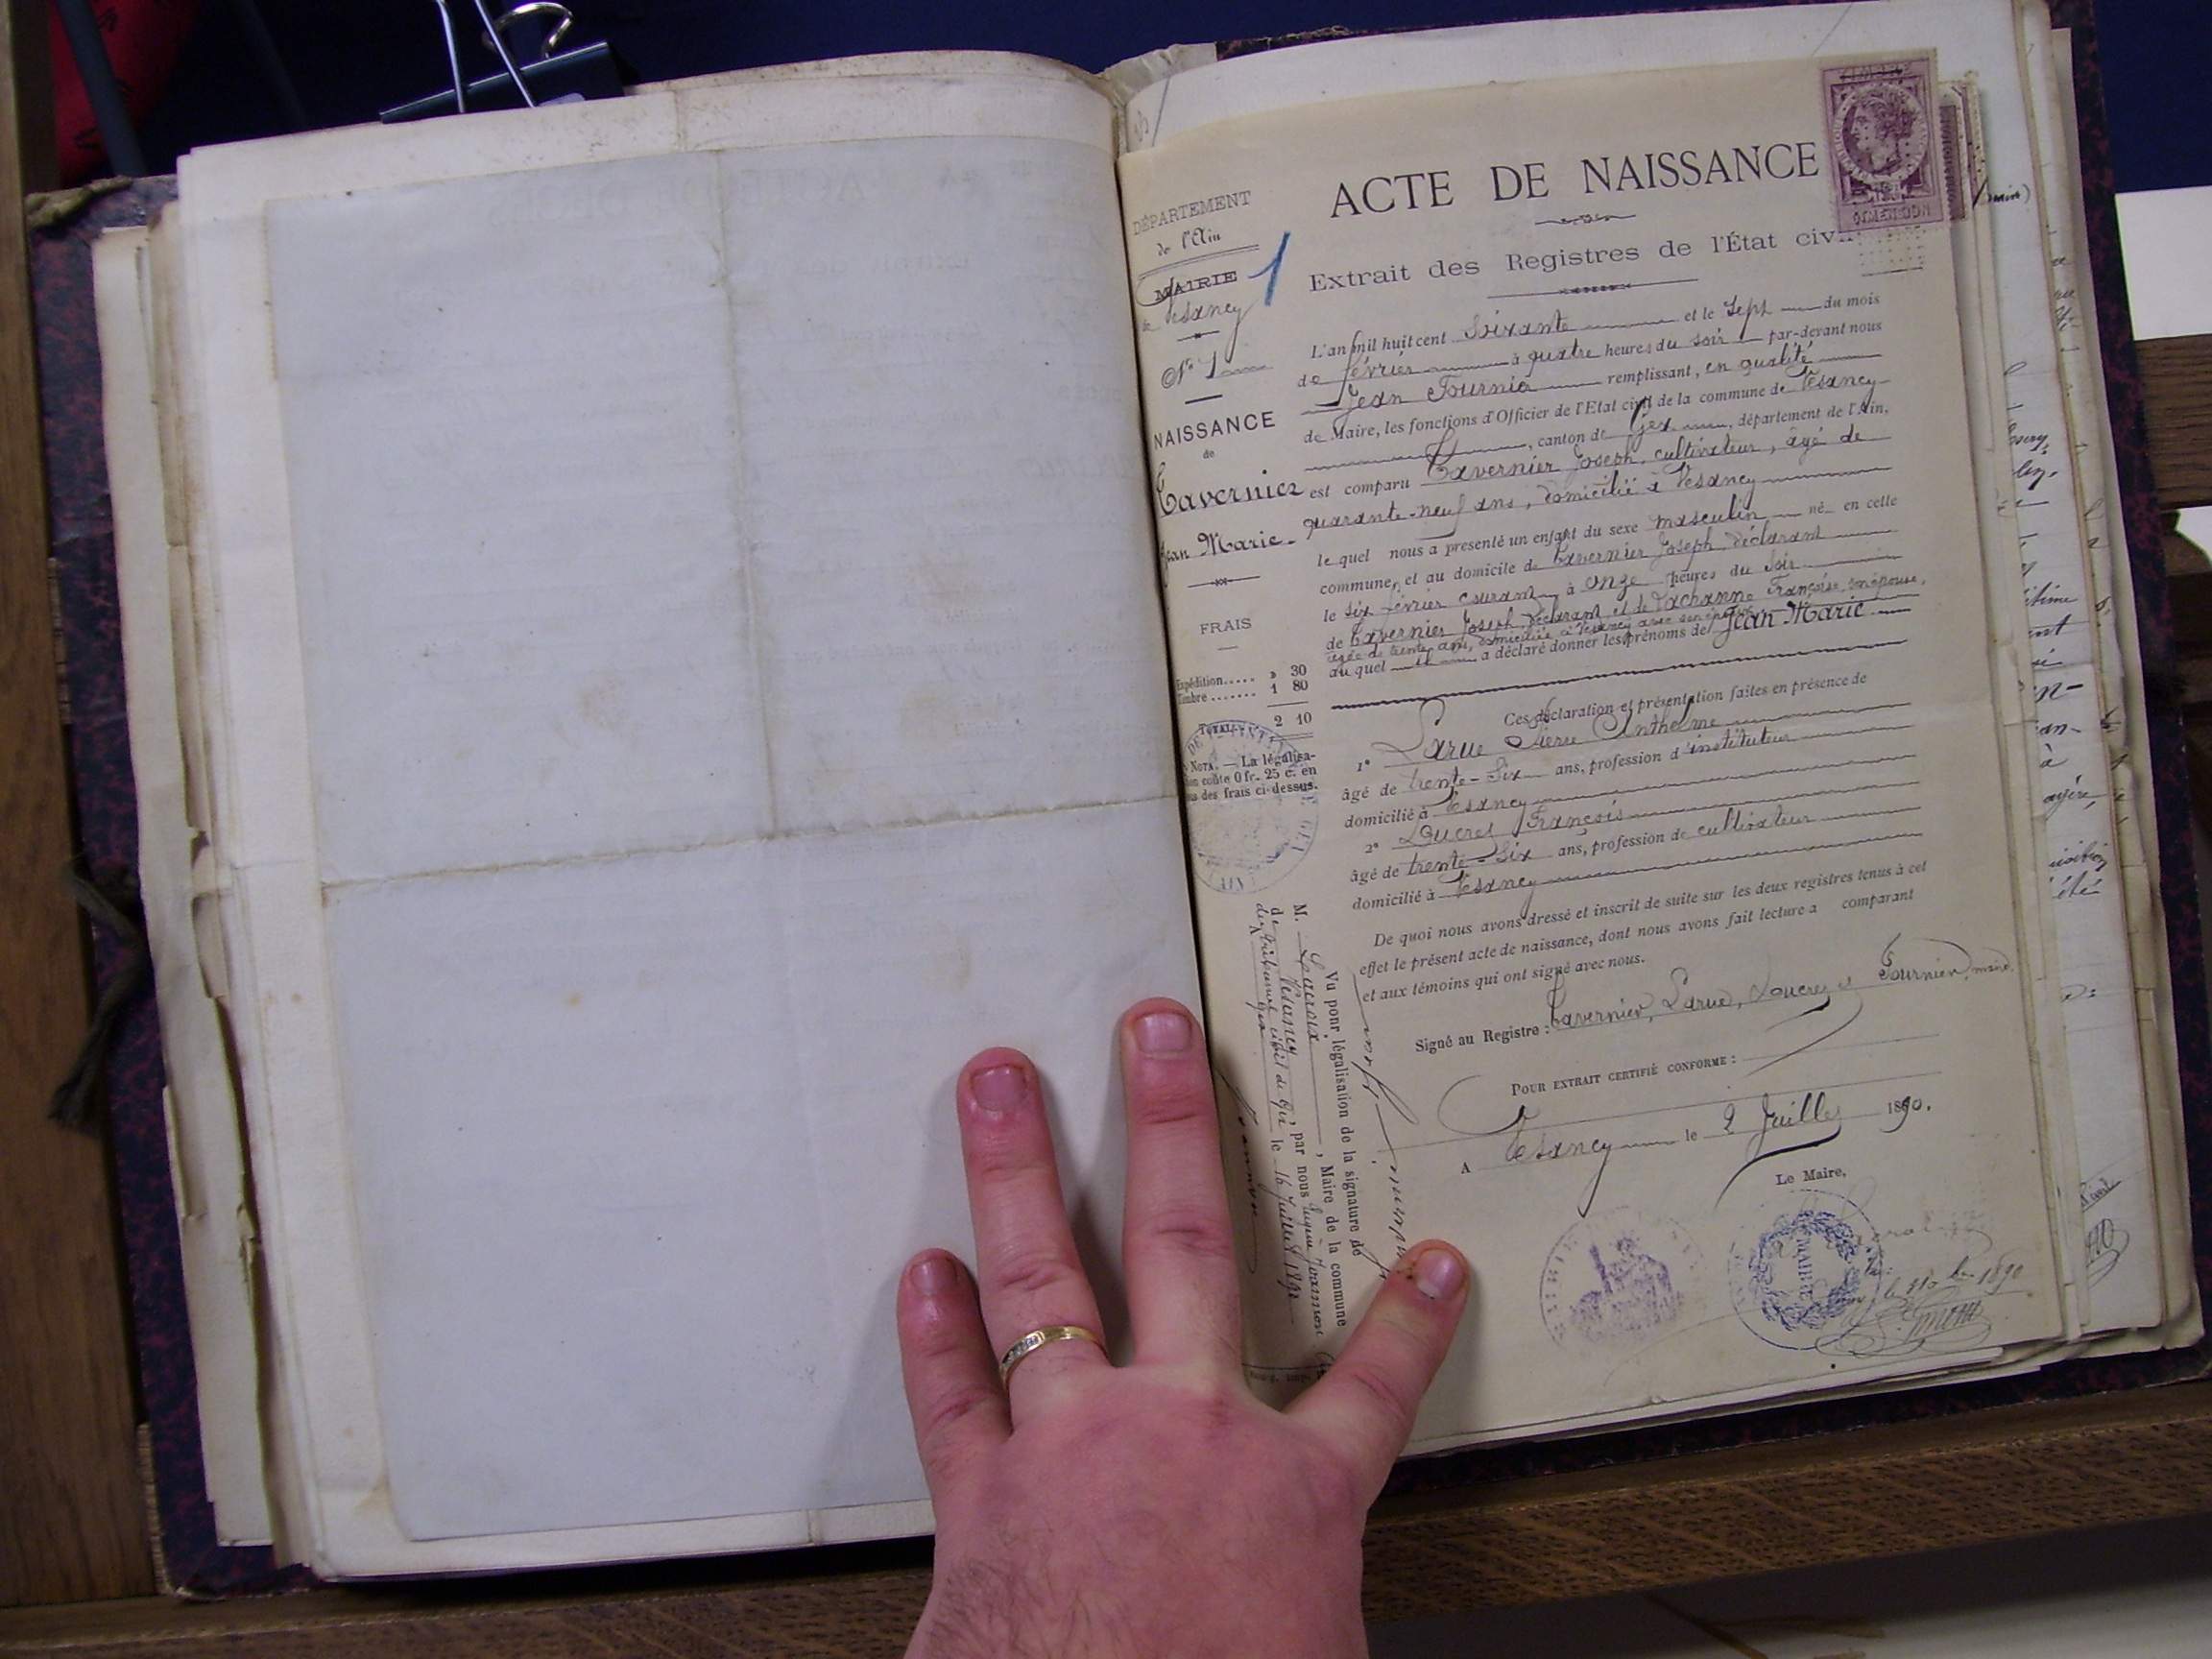 ACTE DE NAISSANCE
Extrait des Registres de l'État civil
DÉPARTEMENT
de l'Ain
MAIRIE
de Vesancy
1
N° 1
NAISSANCE
de
Tavernier
Jean Marie
FRAIS
Expédition..... » 30
Timbre....... 1 80
TOTAL 2 10
NOTA. — La légalisa-
tion coûte 0 fr. 25 c. en
sus des frais ci-dessus.
DIMENSION
L'an mil huit cent Soixante et le Sept du mois
de février à quatre heures du soir par-devant nous
Jean Fournier remplissant, en qualité
de Maire, les fonctions d'Officier de l'Etat civil de la commune de Vesancy
, canton de Gex, département de l'Ain,
est comparu Tavernier Joseph, cultivateur, âgé de
quarante-neuf ans, domicilié à Vesancy
le quel nous a présenté un enfant du sexe masculin né en cette
commune, et au domicile de Tavernier Joseph, déclarant
le six février courant à onze heures du soir
de Tavernier Joseph, déclarant et de Françoise, son épouse,
âgée de trente ans, domiciliée à Vesancy avec son époux
au quel a déclaré donner les prénoms de Jean Marie
Ces déclaration et présentation faites en présence de
1° Larue Pierre Anthelme
âgé de trente-six ans, profession d'instituteur
domicilié à Vesancy
2° Ducret François
âgé de trente-six ans, profession de cultivateur
domicilié à Vesancy
De quoi nous avons dressé et inscrit de suite sur les deux registres tenus à cet
effet le présent acte de naissance, dont nous avons fait lecture a comparant
et aux témoins qui ont signé avec nous.
Signé au Registre : Tavernier, Larue, Ducret et Fournier, maire.
POUR EXTRAIT CERTIFIÉ CONFORME :
A Vesancy le 2 Juillet 1890.
Le Maire,
MAIRIE
Vu pour légalisation de la signature de
M. Lacroix, Maire de la commune
de Vesancy, par nous
du tribunal civil de Gex le 16 Juillet 1890